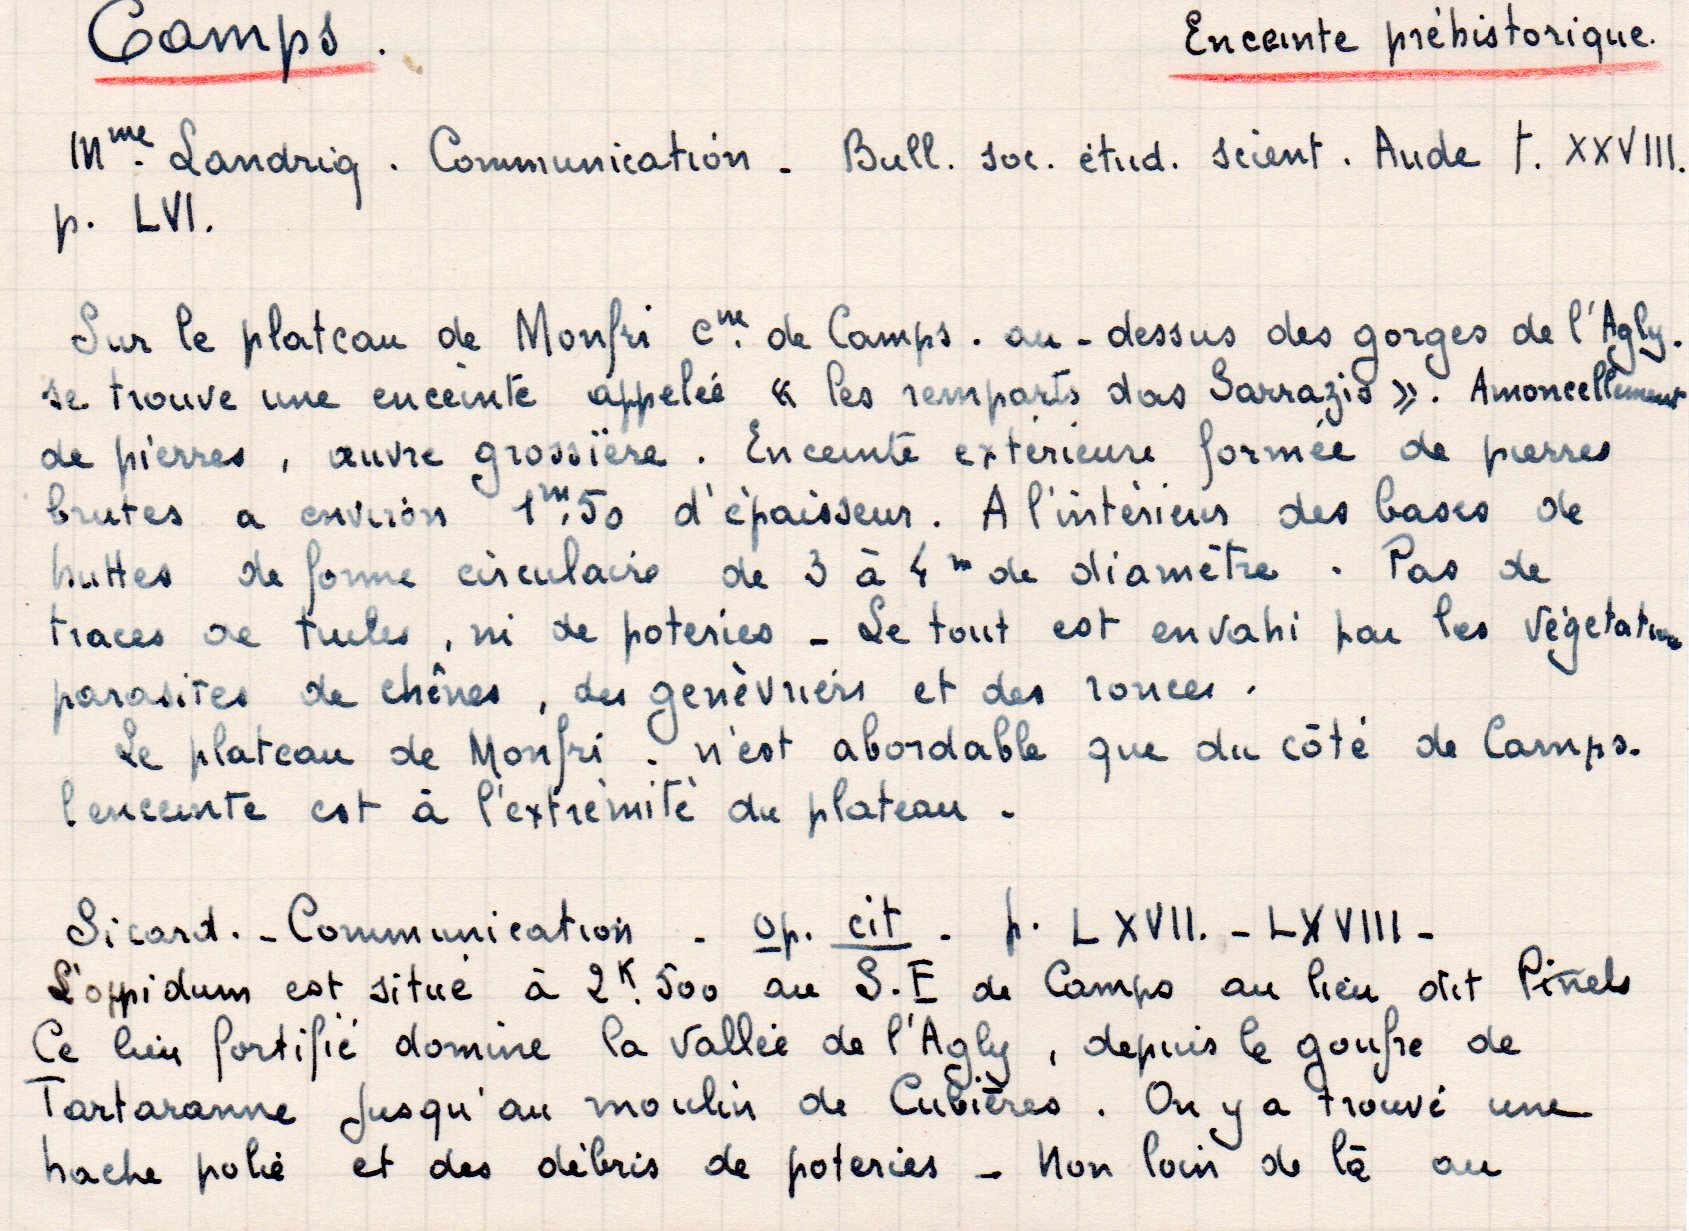 Camps. Enceinte préhistorique.
Mme. Landrig. Communication - Bull. soc. étud. scient. Aude t. XXVIII.
p. LVI.
Sur le plateau de Monfri cne. de Camps. au-dessus des gorges de l'Agly.
se trouve une enceinte appelée « les remparts das Sarrazis ». Amoncellement
de pierres, œuvre grossière. Enceinte extérieure formée de pierres
brutes a environ 1m,50 d'épaisseur. A l'intérieur des bases de
huttes de forme circulaire de 3 à 4m de diamètre. Pas de
traces de tuiles, ni de poteries - Le tout est envahi par les végétations
parasites de chênes, des genèvriers et des ronces.
Le plateau de Monfri. n'est abordable que du côté de Camps.
l'enceinte est à l'extrémité du plateau -
Sicard. - Communication - op. cit - p. LXVII. - LXVIII -
L'oppidum est situé à 2K.500 au S.E de Camps au lieu dit Pinels
Ce lieu fortifié domine la vallée de l'Agly, depuis le goufre de
Tartaranne jusqu'au moulin de Cubières. On y a trouvé une
hache polie et des débris de poteries - Non loin de là au